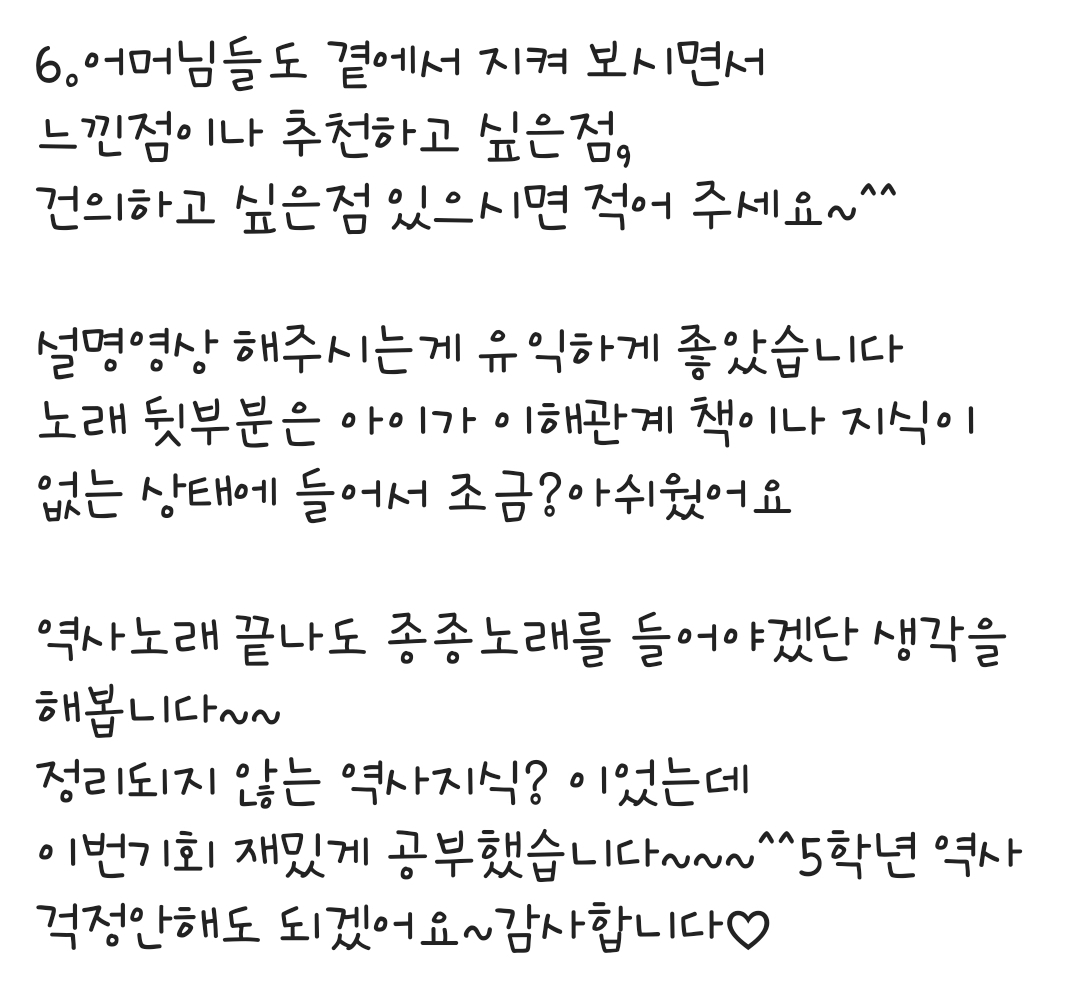 6.어머님들도 곁에서 지켜 보시면서
느낀점이나 추천하고 싶은점,
건의하고 싶은점 있으시면 적어 주세요~^^
설명영상 해주시는게 유익하게 좋았습니다
노래 뒷부분은 아이가 이해관계 책이나 지식이
없는 상태에 들어서 조금?아쉬웠어요
역사노래 끝나도 종종노래를 들어야겠단 생각을
해봅니다~~
정리되지 않는 역사지식? 이었는데
이번기회 재밌게 공부했습니다~~~^^5학년 역사
걱정안해도 되겠어요~감사합니다♡